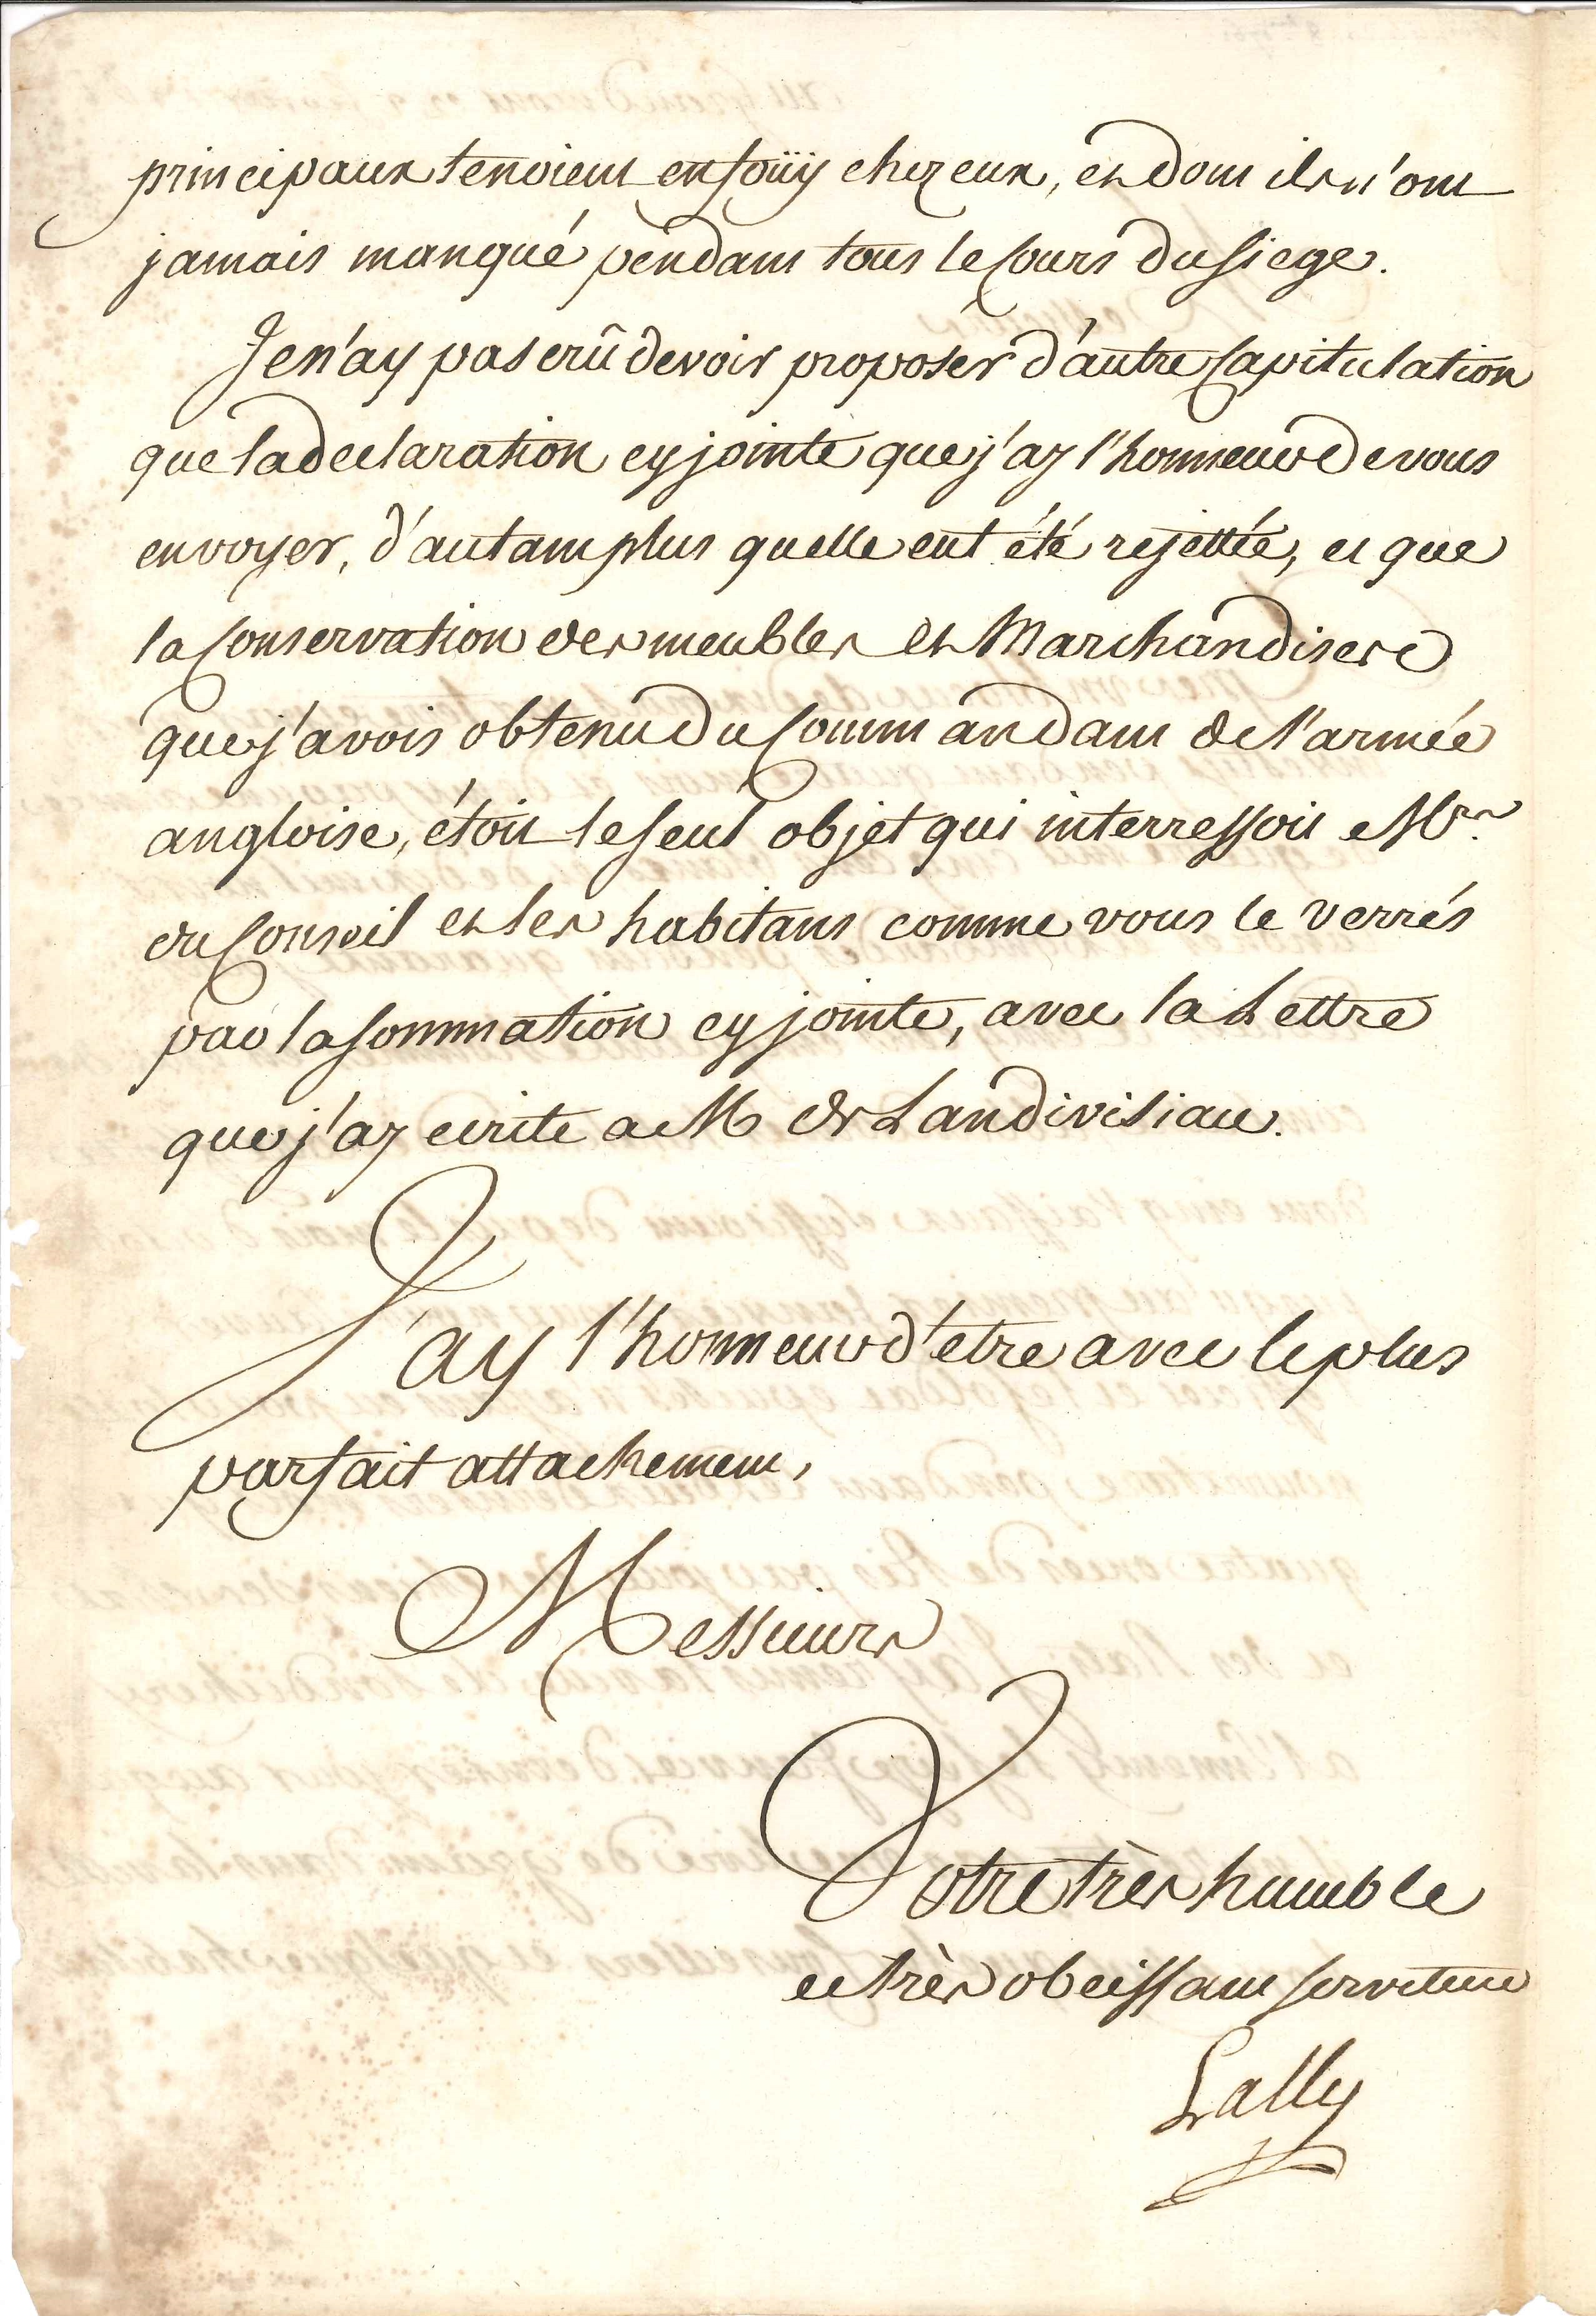 principaux tenoient enfoüy chez eux, et dont ils n'ont
jamais manqué pendant tous le Cours du siege.
Je n'ay pas crû devoir proposer d'autre Capitulation
que la declaration cy jointe que j'ay l'honneur de vous
envoyer, d'autant plus quelle eut été rejettée, et que
la Conservation des meubles et Marchandises
que j'avois obtenu du Commandant de l'armée
angloise, étoit le seul objet qui interressoit Mrs.
du Conseil et les habitans comme vous le verrés
par la sommation cy jointe, avec la Lettre
que j'ay ecrite a M de Landivisiau.
J'ay l'honneur d'etre avec le plus
parfait attachement,
Messieurs
Votre très humble
et très obeissant serviteur
Lally